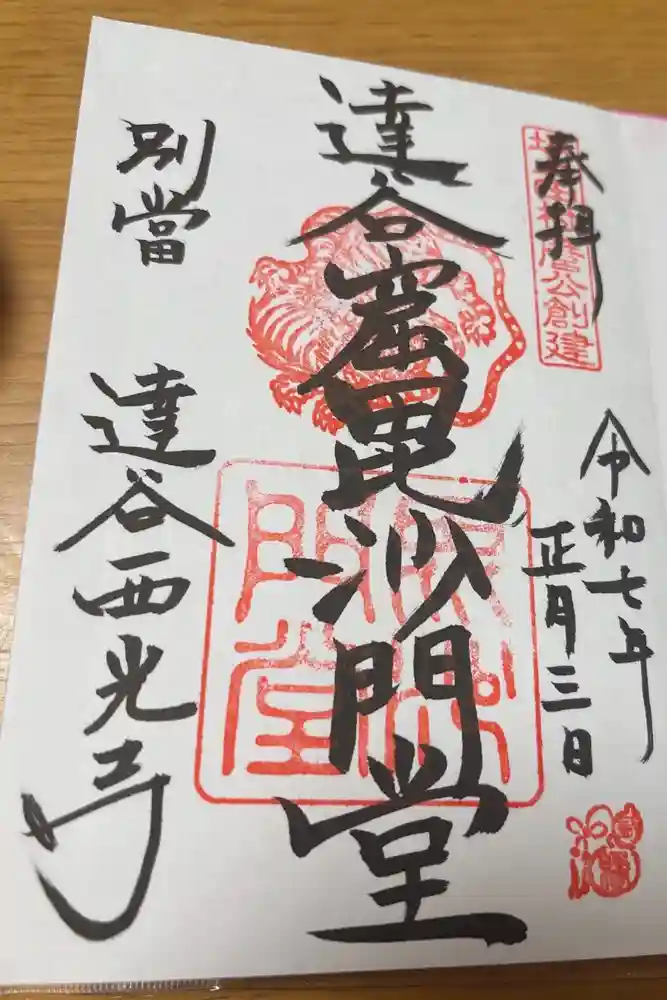 奉拝
麿公創建
令和七年
正月三日
達谷窟毘沙門堂
毘沙
門堂
別當 達谷西光寺